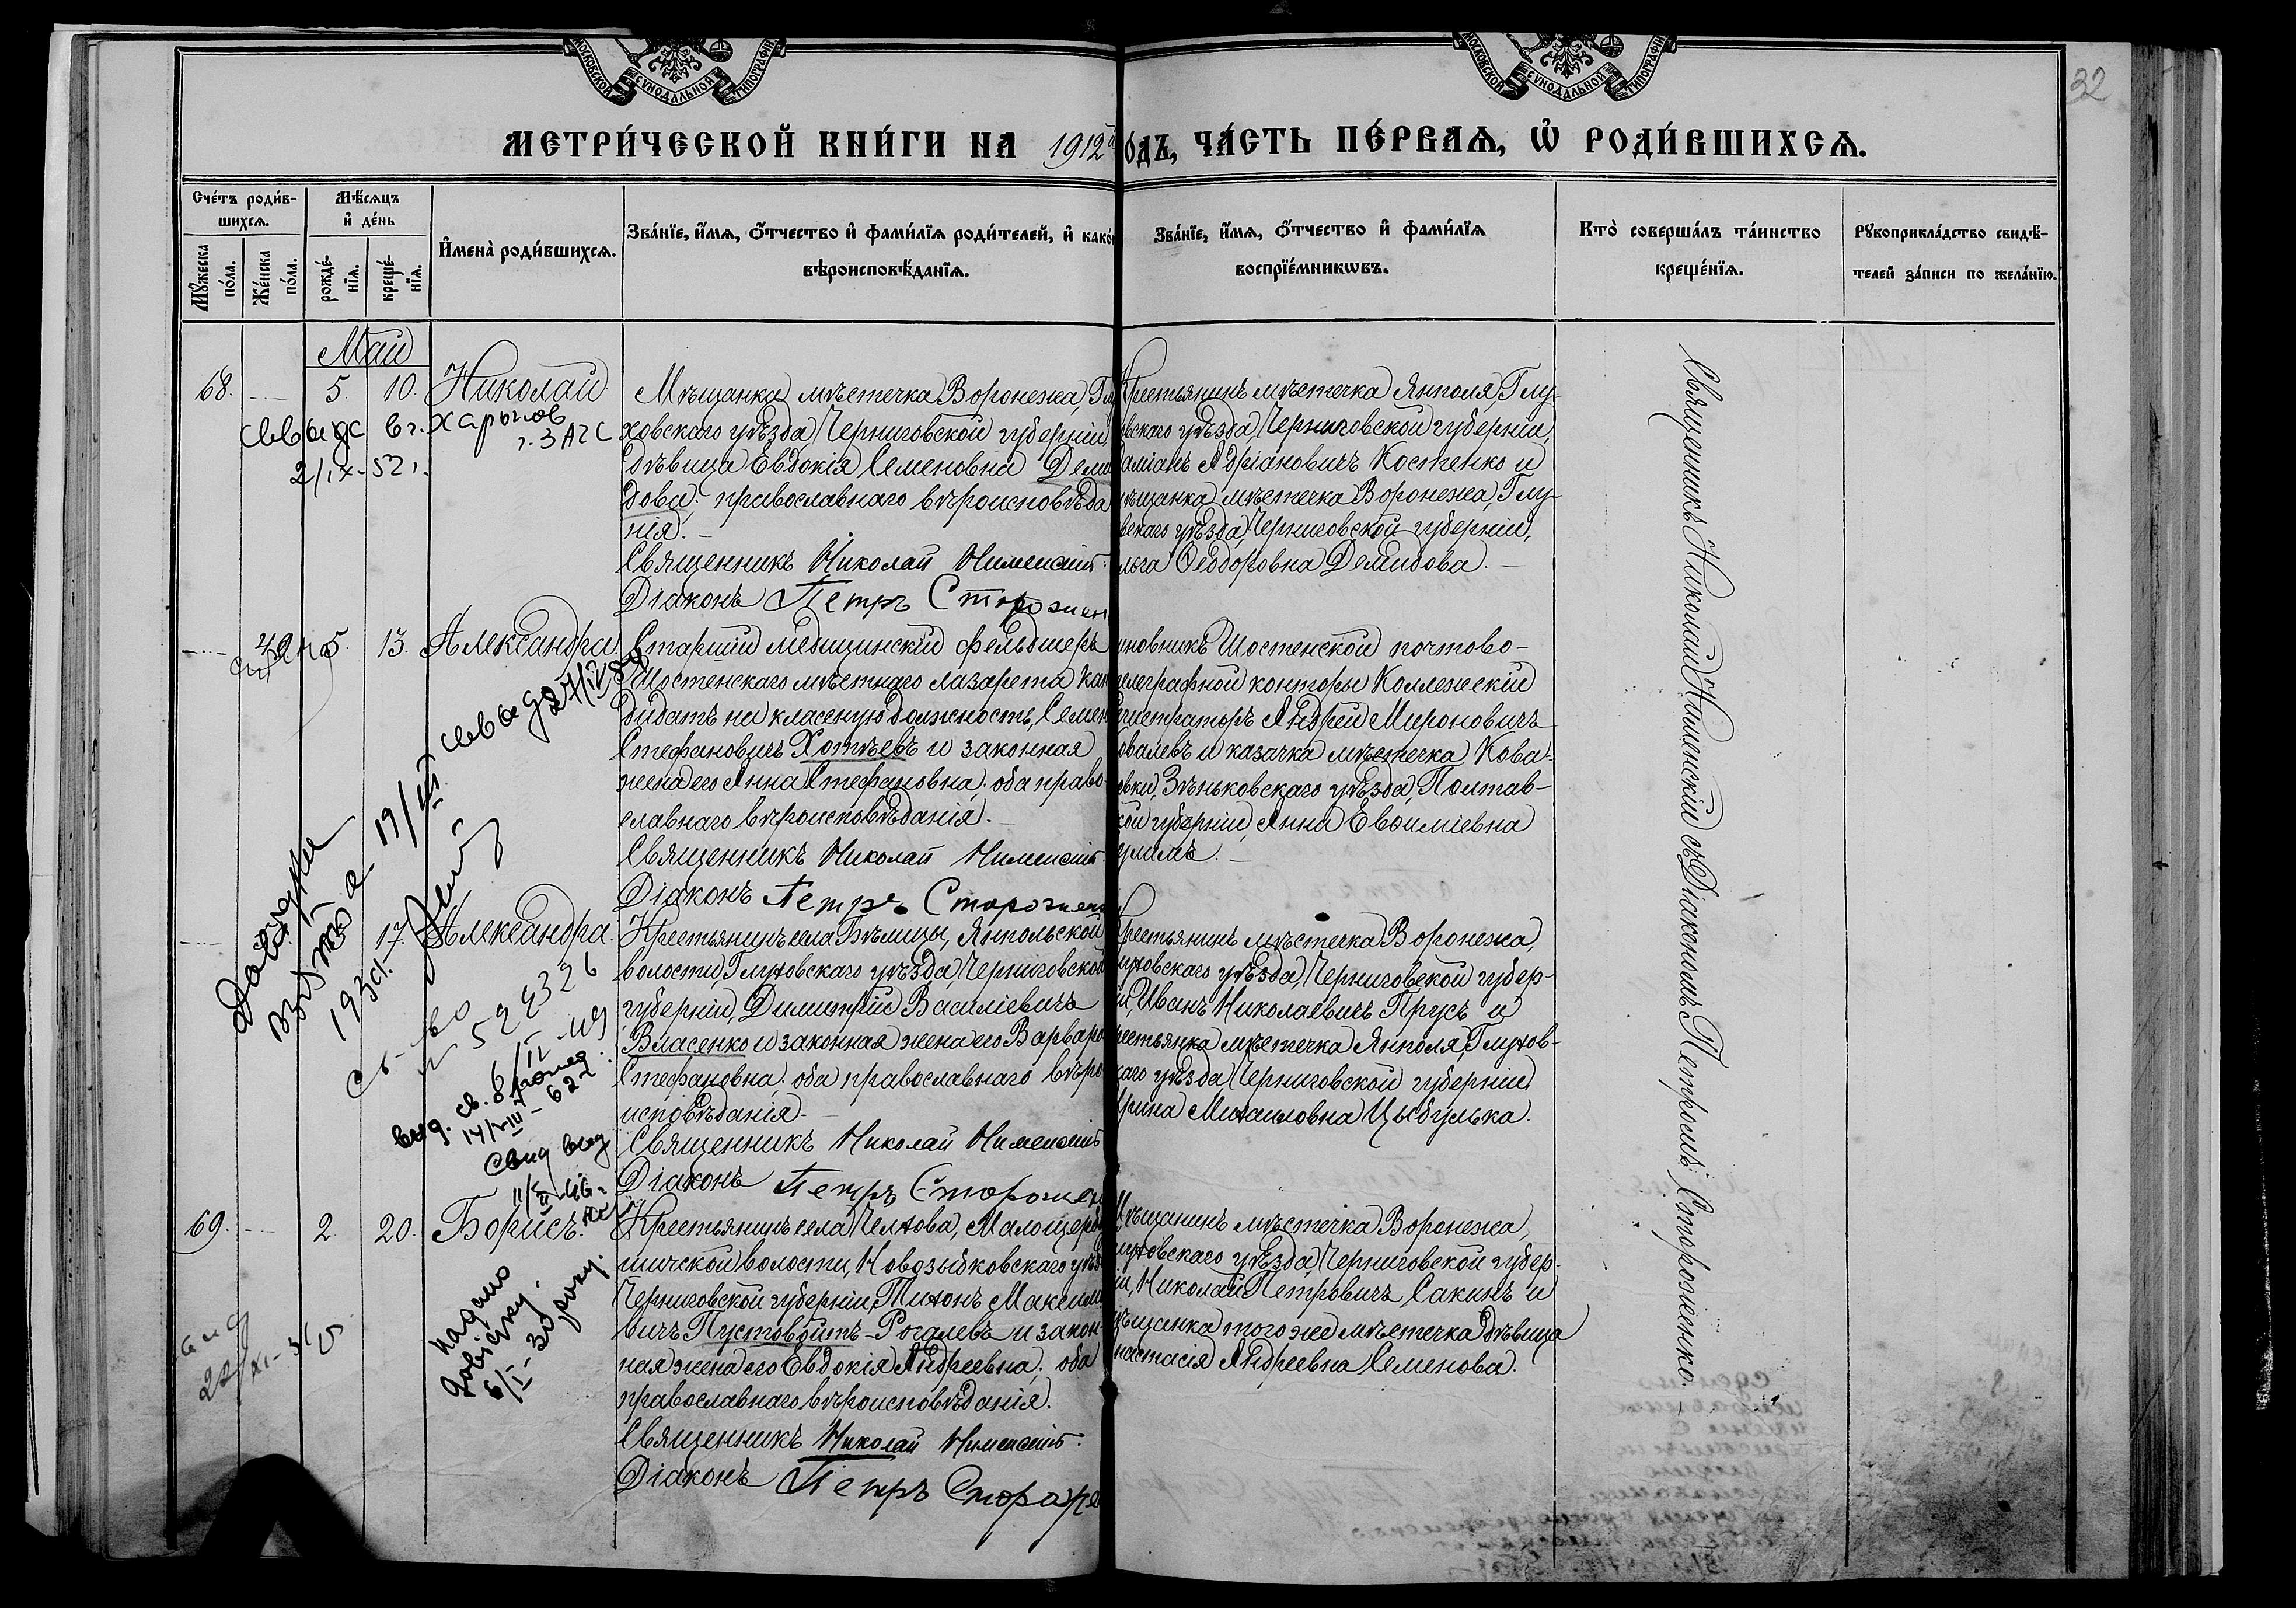 МОСКОВСКОЙ СѴНОДАЛЬНОЙ ТИПОГРАФІИ
МОСКОВСКОЙ СѴНОДАЛЬНОЙ ТИПОГРАФІИ
32
МЕТРИ́ЧЕСКОЙ КНИ́ГИ НА 1912й
о́дъ, ЧА́СТЬ ПЕ́РВАѦ, Ѡ҆ РОДИ́ВШИХСѦ.
Сче́тъ роди́в-
шихсѧ.
Мꙋ́жеска по́ла.
Же́нска по́ла.
Мѣ́сѧцъ
и҆ де́нь
рожде́-
нїѧ.
креще́-
нїѧ.
И҆мена̀ роди́вшихсѧ.
Зва́нїе, и҆́мѧ, ѻ҆́тчество и҆ фами́лїѧ роди́телей, и҆ како́г
вѣроисповѣ́данїѧ.
Зва́нїе, и҆́мѧ, ѻ҆́тчество и҆ фами́лїѧ
воспрїе́мникѡвъ.
Кто̀ соверша́лъ та́инство
креще́нїѧ.
Рꙋкоприкла́дство свидѣ́-
телей за́писи по жела́нїю.
Май
68. — 5. 10. Николай
2/IX-52 г.
Мѣщанка мѣстечка Воронежа, Глу
ховскаго уѣзда, Черниговской губерніи
дѣвица Евдокія Семеновна Деми
дова; православнаго вѣроисповѣда
нія. —
Священникъ Николай
Діаконъ Петръ Сторожен
Крестьянинъ мѣстечка Янполя, Глу-
вскаго уѣзда, Черниговской губерніи,
аміанъ Адріановичъ Костенко и
мѣщанка мѣстечка Воронежа, Глу-
вскаго уѣзда, Черниговской губерніи,
льга Ѳеодоровна Демидова. —
— 49 5. 13. Александра.
27/IV
Старшій медицинскій фельдшеръ
Шостенскаго мѣстнаго лазарета кан
дидатъ на класеную должность, Семен
Стефановичъ Хотѣевъ и законная
жена его Анна Стефановна; оба право-
славнаго вѣроисповѣданія. —
Священникъ Николай
Діаконъ Петръ Сторожен
иновникъ Шостенской почтово-
елеграфной конторы Коллежскій
егистраторъ Андрей Мироновичъ
овалевъ и казачка мѣстечка Кова-
евки, Зѣньковскаго уѣзда, Полтав-
кой губерніи, Анна Евѳиміевна
— 17. Александра.
взята 19/III
193
№ 524326
14/VIII - 62 г.
Крестьянинъ села Бѣлицы, Янпольской
волости, Глуховскаго уѣзда, Черниговской
губерніи, Димитрій Василіевичъ
Власенко и законная жена его Варвара
Стефановна; оба православнаго вѣро
исповѣданія. —
Священникъ Николай
Діаконъ Петръ Сторожен
Крестьянинъ мѣстечка Воронежа,
луховскаго уѣзда, Черниговской губер-
іи, Иванъ Николаевичъ Прусъ и
рестьянка мѣстечка Янполя, Глухов-
каго уѣзда, Черниговской губерніи
Ирина Михаиловна Цыбулька.
69. — 2. 20. Борисъ.
Надано
довідку
6/I-30 року
Крестьянинъ села Челхова, Малощерб
иничской волости, Новозыбковскаго уѣз
Черниговской губерніи, Тихонъ Максим
вичъ Пустовойтъ-Рогалевъ и закон-
ная жена его Евдокія Андреевна; оба
православнаго вѣроисповѣданія.
Священникъ Николай
Діаконъ Петръ
Мѣщанинъ мѣстечка Воронежа,
луховскаго уѣзда, Черниговской губер-
іи, Николай Петровичъ Сакинъ и
мѣщанка того же мѣстечка дѣвица
настасія Андреевна Семенова.
Священникъ Николай съ Діакономъ Петромъ Стороженко. —